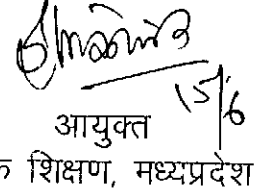 15/6
आयुक्त
क शिक्षण, मध्यप्रदेश